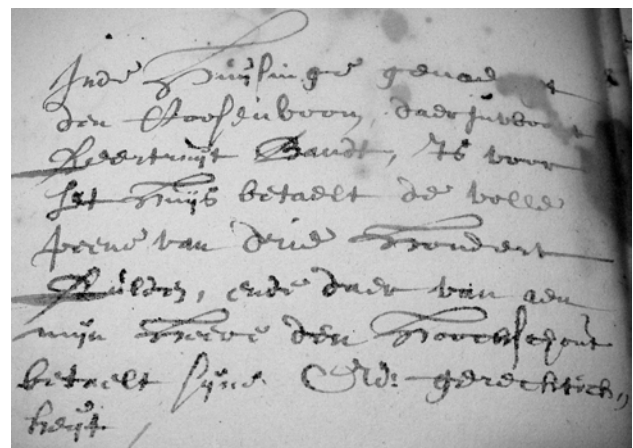 Inde Huijsinge genaemt
den Roosenboom, daer Jut voor
Geertruijt Bandt, Is voor
het Huijs betaelt de volle
peene van drie Hondert
Gulden, ende daer van aen
mijn Heere den Hoochschout
betaelt sijne Ed: gerechtich„
heijt